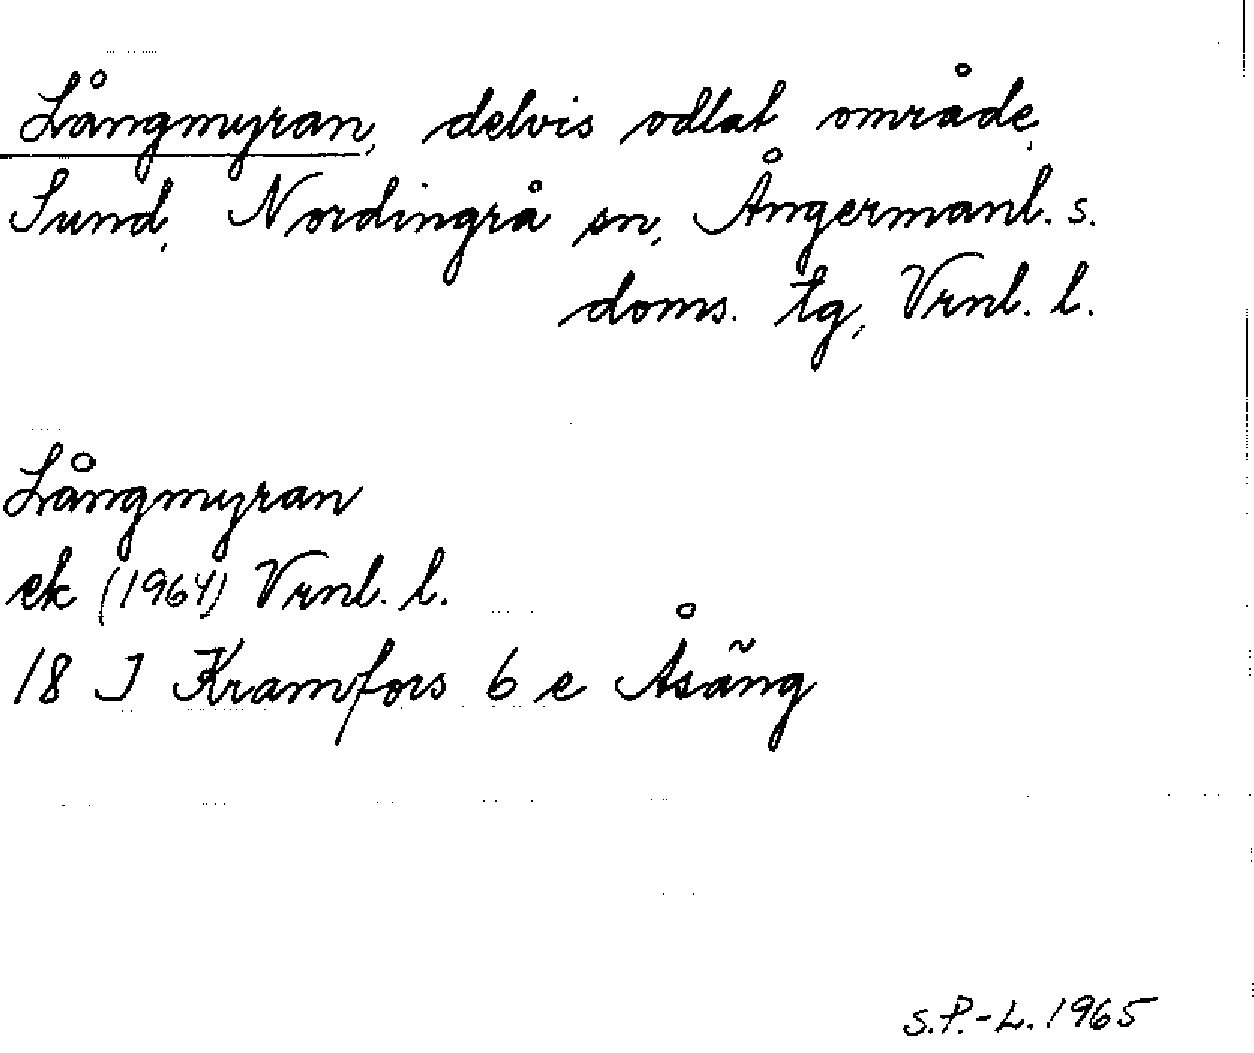 Långmyran, delvis odlat område,
Sund, Nordingrå sn, Ångermanl. s.
doms. tg, Vrnl. l.
Långmyran
ek (1964) Vrnl. l.
18 J Kramfors 6 e Åsäng
S.P.-L. 1965